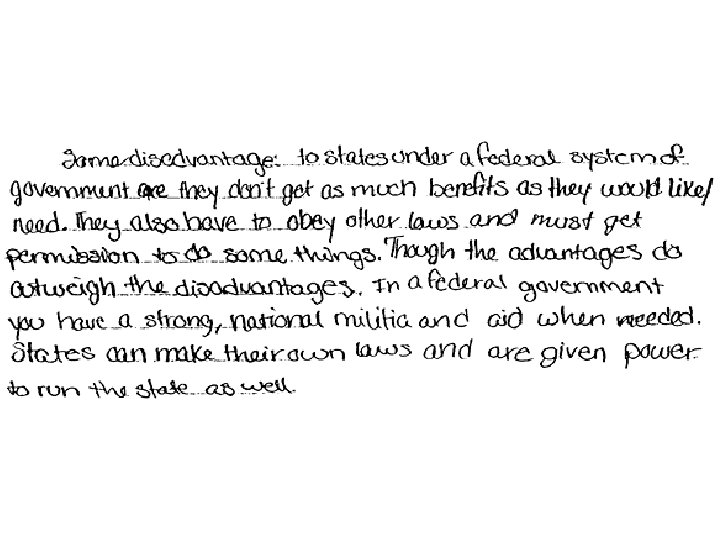 Some disadvantage: to states under a federal system of
government are they don't get as much benefits as they would like/
need. They also have to obey other laws and must get
permission to do some things. Though the advantages do
outweigh the disadvantages. In a federal government
you have a strong, national militia and aid when needed.
States can make their own laws and are given power
to run the state as well.